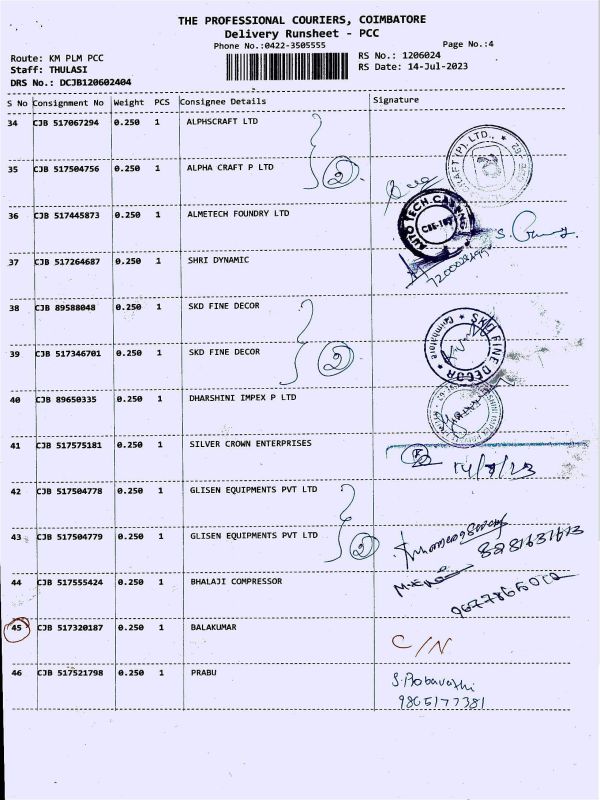 THE PROFESSIONAL COURIERS, COIMBATORE
Delivery Runsheet - PCC
Phone No.:0422-3505555
Page No.:4
Route: KM PLM PCC
RS No.: 1206024
Staff: THULASI
RS Date: 14-Jul-2023
DRS No.: DCJB120602404
S No Consignment No Weight PCS Consignee Details Signature
34 CJB 517067294 0.250 1 ALPHSCRAFT LTD
35 CJB 517504756 0.250 1 ALPHA CRAFT P LTD
2
CRAFT (P). LTD.,
36 CJB 517445873 0.250 1 ALMETECH FOUNDRY LTD
AUTO TECH. CASTING
37 CJB 517264687 0.250 1 SHRI DYNAMIC
38 CJB 89588048 0.250 1 SKD FINE DECOR
39 CJB 517346701 0.250 1 SKD FINE DECOR
2
SKD FINE DECOR
Coimbatore
40 CJB 89650335 0.250 1 DHARSHINI IMPEX P LTD
41 CJB 517575181 0.250 1 SILVER CROWN ENTERPRISES
14/7/23
42 CJB 517504778 0.250 1 GLISEN EQUIPMENTS PVT LTD
43 CJB 517504779 0.250 1 GLISEN EQUIPMENTS PVT LTD
2
8281631613
44 CJB 517555424 0.250 1 BHALAJI COMPRESSOR
45 CJB 517320187 0.250 1 BALAKUMAR
C/N
46 CJB 517521798 0.250 1 PRABU
S. Prabavathi
9865177381